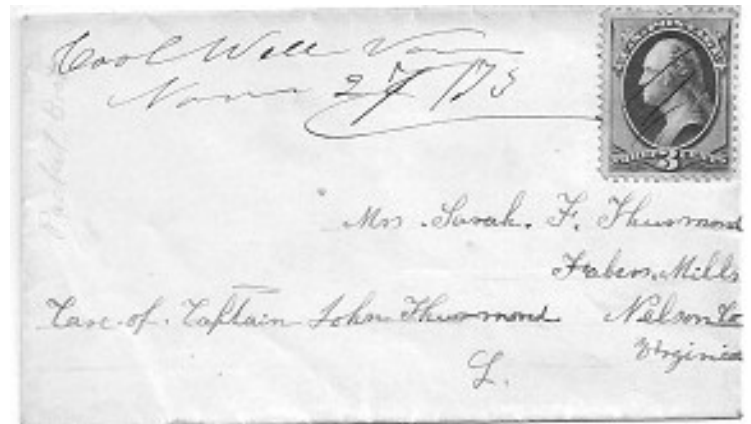 Cool Well Va
Nov 27 / 73
THREE 3 CENTS
Mrs. Sarah. F. Thurmond
Fabers Mills
Care of. Captain John Thurmond Nelson Co
Virginia
L.